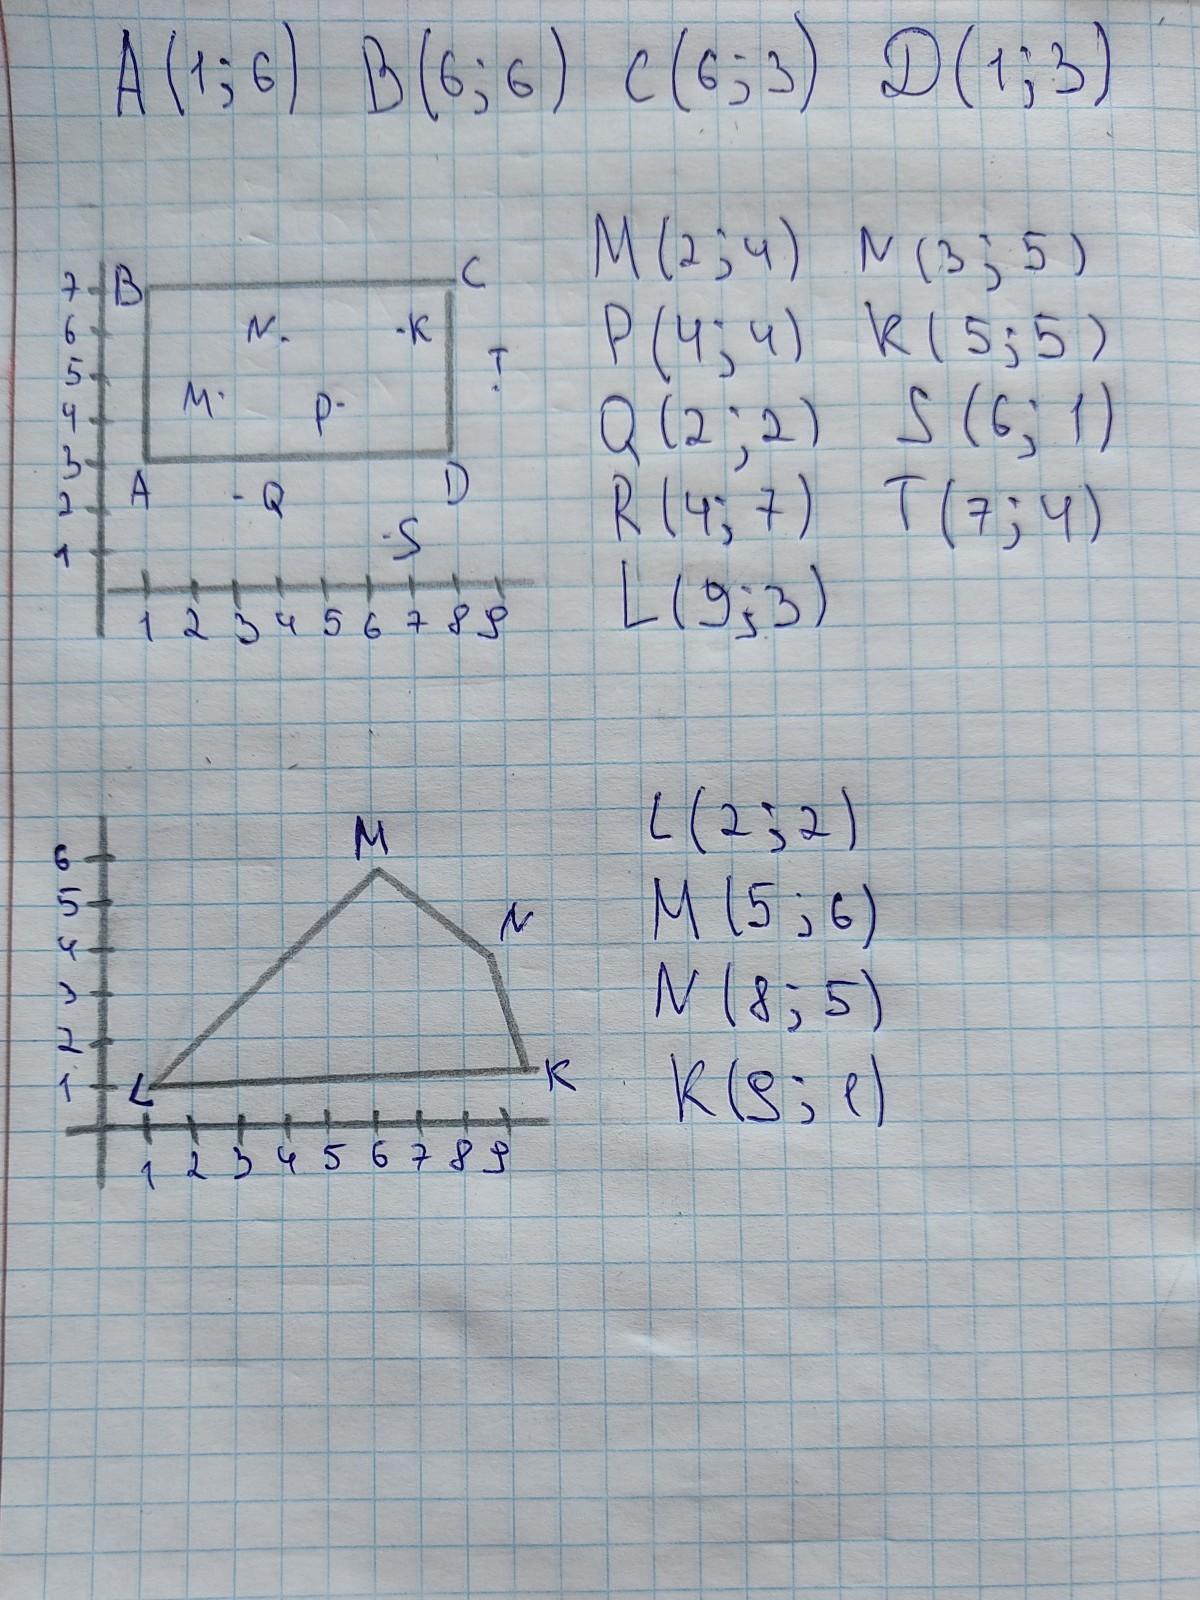 A(1;6) B(6;6) C(6;3) D(1;3)
M(2;4) N(3;5)
P(4;4) K(5;5)
Q(2;2) S(6;1)
R(4;7) T(7;4)
L(9;3)
7 B C
6 N K
5 T
4 M P
3
A Q D
2
1 S
1 2 3 4 5 6 7 8 9
M
6
5 N
4
3
2
1 L K
1 2 3 4 5 6 7 8 9
L(2;2)
M(5;6)
N(8;5)
K(9;1)